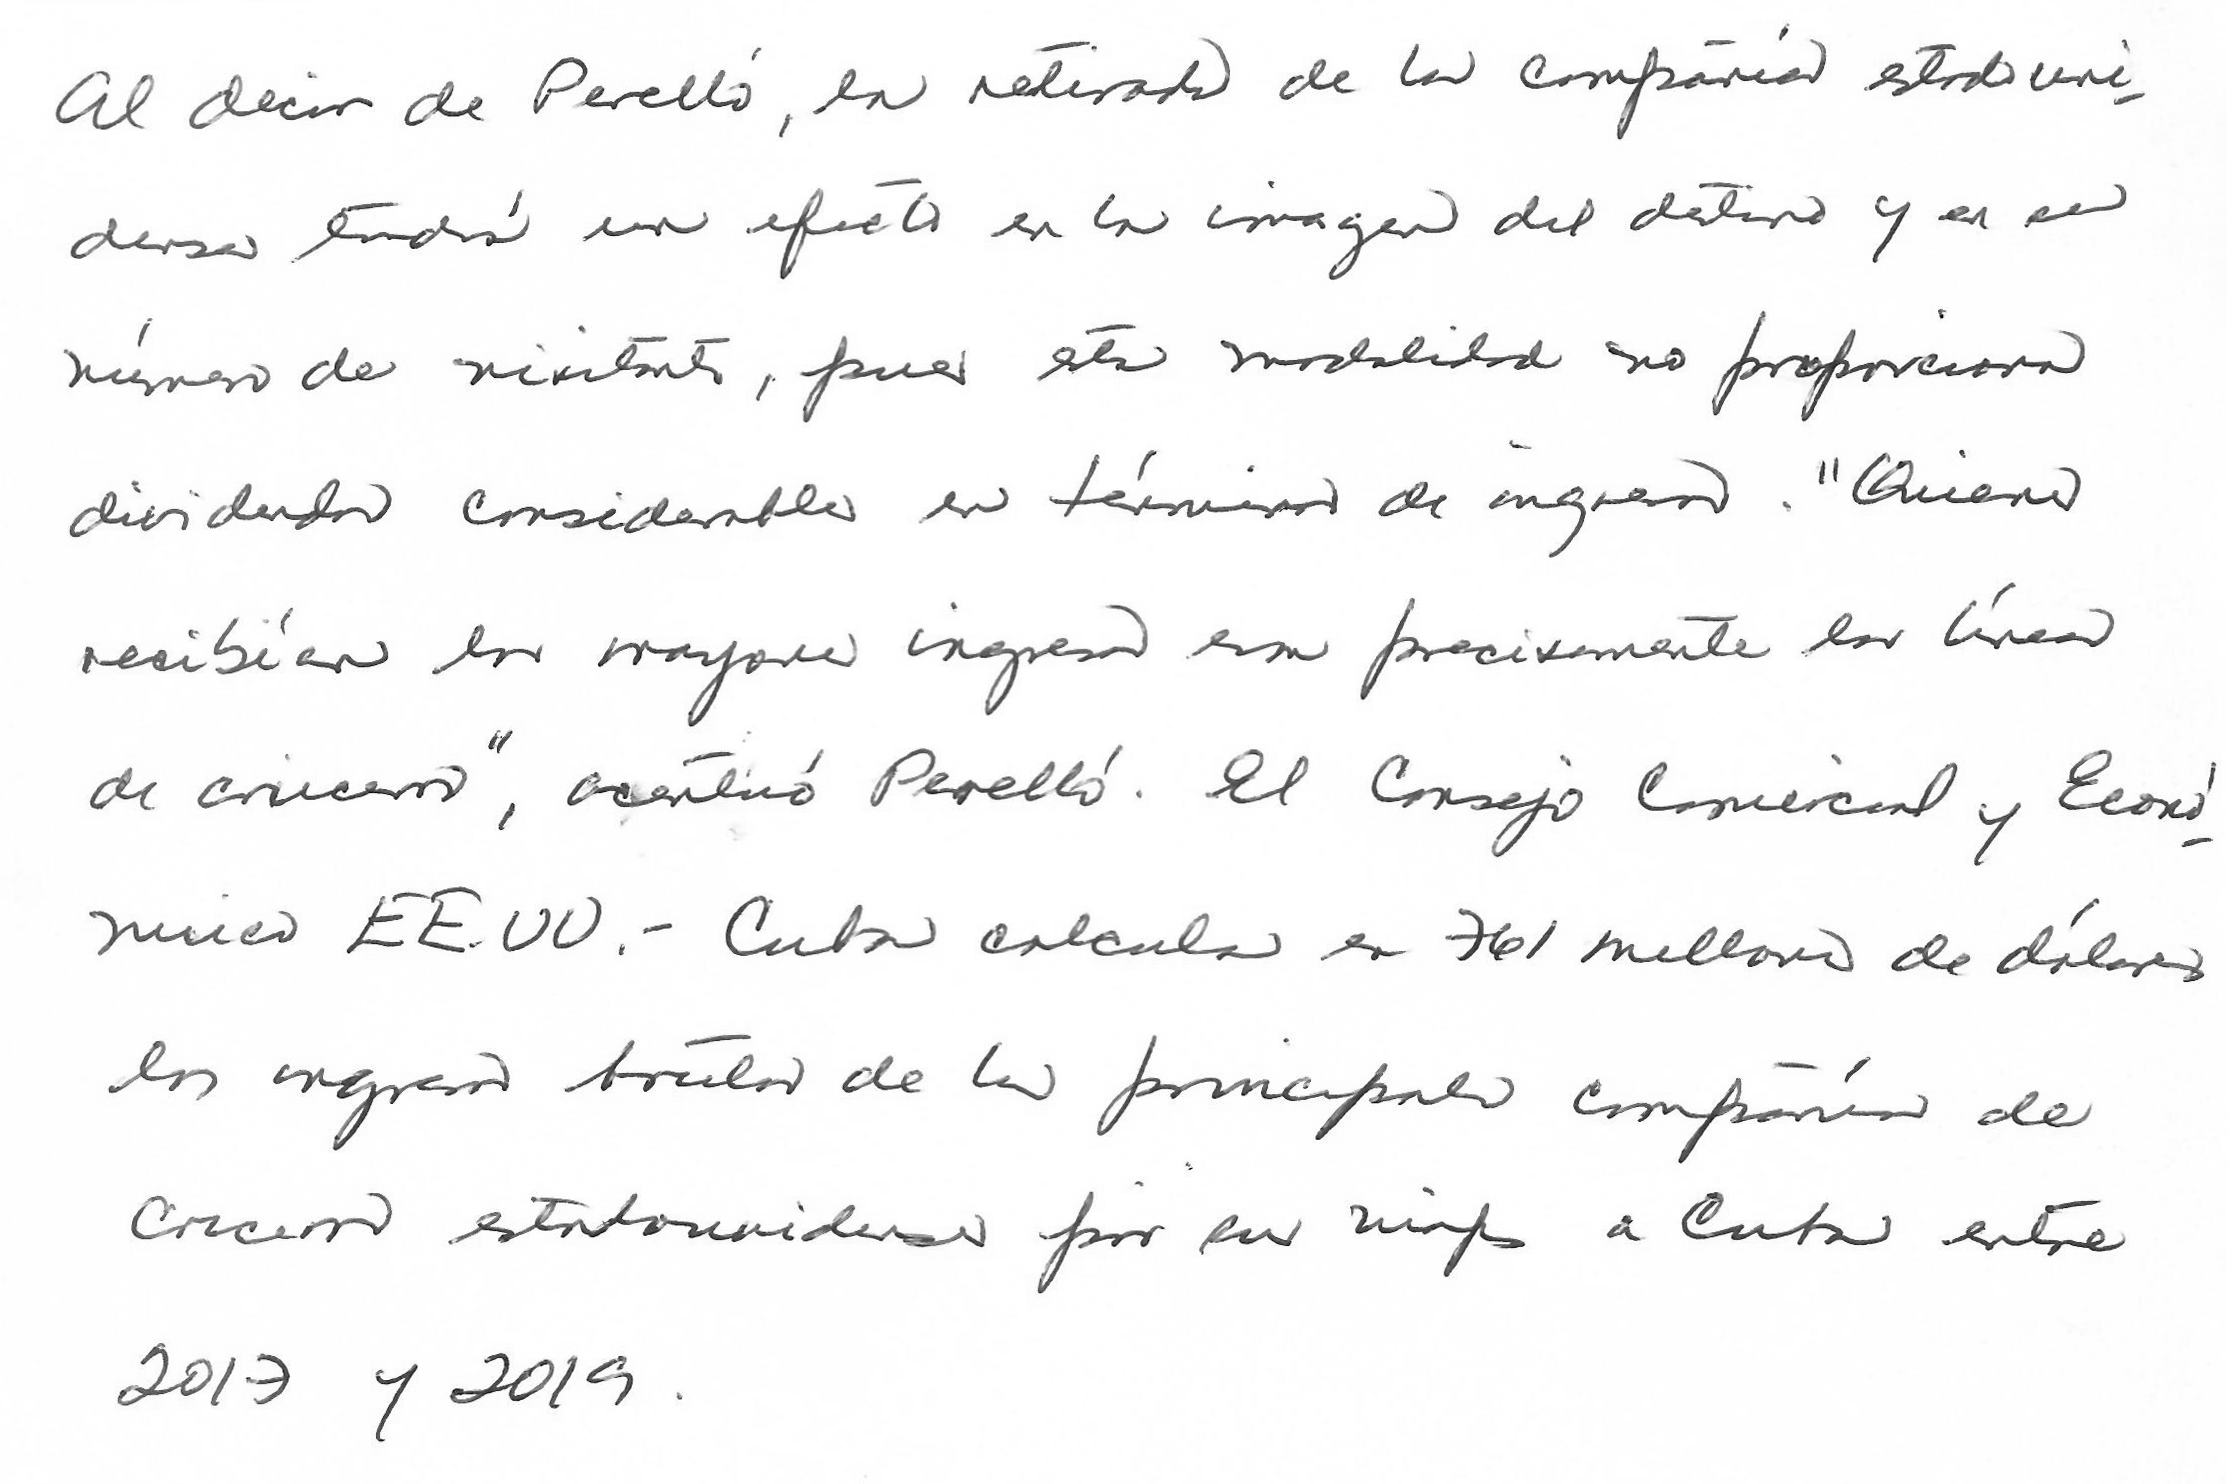 Al decir de Perelló, la retirada de las compañías estadouni-
denses tendrá un efecto en la imagen del destino y en su
número de visitantes, pues esta modalidad no proporciona
dividendos considerables en términos de ingresos. "Quienes
recibían los mayores ingresos eran precisamente las líneas
de cruceros", acentuó Perelló. El Consejo Comercial y Econó-
mico EE.UU.- Cuba calcula en 761 millones de dólares
los ingresos brutos de las principales compañías de
cruceros estadounidenses por sus viajes a Cuba entre
2017 y 2019.